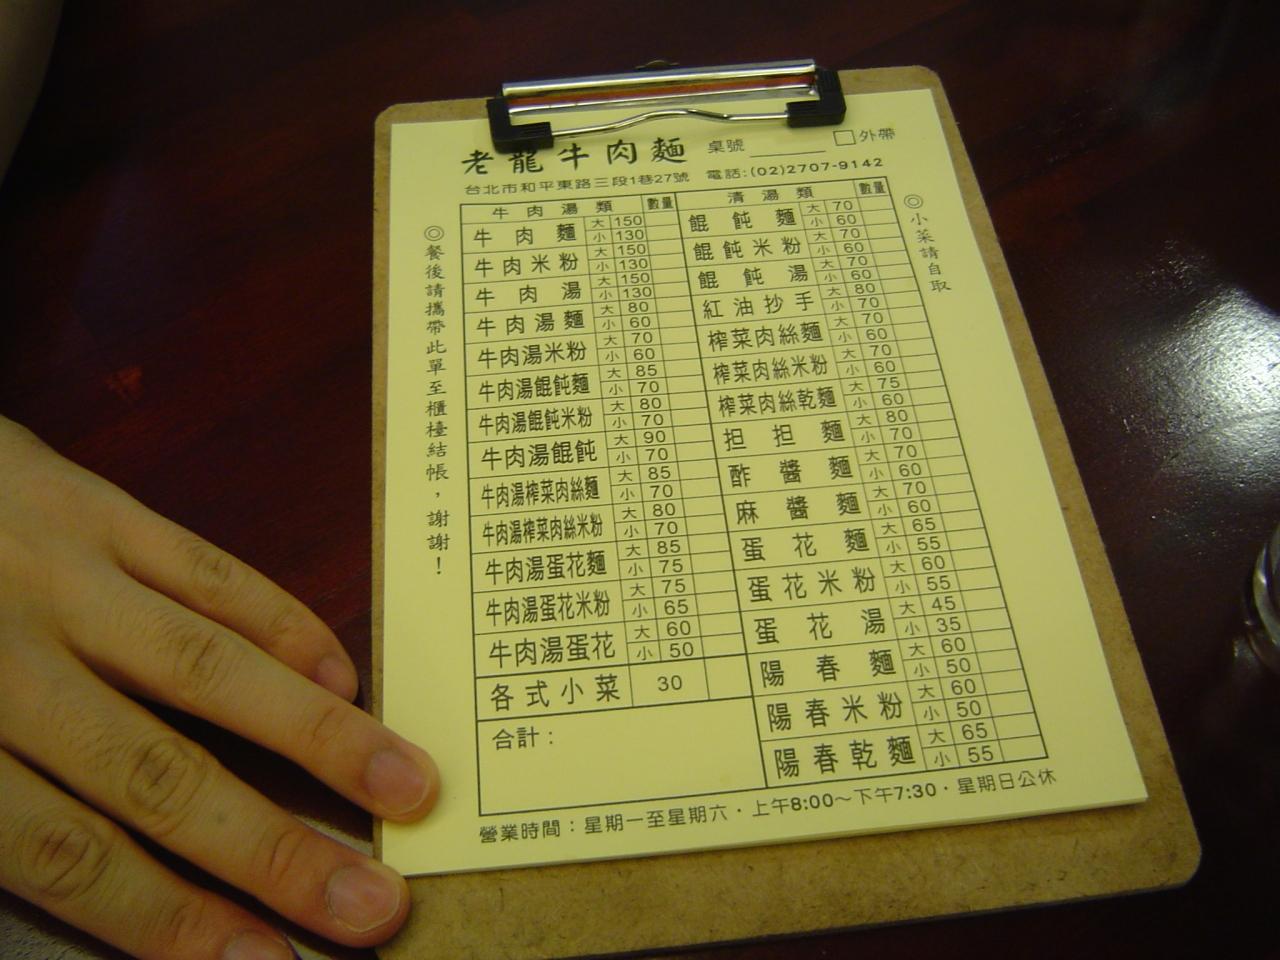 老龍牛肉麵
桌號
外帶
台北市和平東路三段1巷27號 電話:(02)2707-9142
◎餐後請攜帶此單至櫃檯結帳，謝謝！
牛肉湯類 數量
牛肉麵 大 150 小 130
牛肉米粉 大 150 小 130
牛肉湯 大 150 小 130
牛肉湯麵 大 80 小 60
牛肉湯米粉 大 70 小 60
牛肉湯餛飩麵 大 85 小 70
牛肉湯餛飩米粉 大 80 小 70
牛肉湯餛飩 大 90 小 70
牛肉湯榨菜肉絲麵 大 85 小 70
牛肉湯榨菜肉絲米粉 大 80 小 70
牛肉湯蛋花麵 大 85 小 75
牛肉湯蛋花米粉 大 75 小 65
牛肉湯蛋花 大 60 小 50
各式小菜 30
合計：
清湯類 數量
餛飩麵 大 70 小 60
餛飩米粉 大 70 小 60
餛飩湯 大 70 小 60
紅油抄手 大 80 小 70
榨菜肉絲麵 大 70 小 60
榨菜肉絲米粉 大 70 小 60
榨菜肉絲乾麵 大 75 小 60
担担麵 大 80 小 70
酢醬麵 大 70 小 60
麻醬麵 大 70 小 60
蛋花麵 大 65 小 55
蛋花米粉 大 60 小 55
蛋花湯 大 45 小 35
陽春麵 大 60 小 50
陽春米粉 大 60 小 50
陽春乾麵 大 65 小 55
◎小菜請自取
營業時間：星期一至星期六・上午8:00～下午7:30・星期日公休